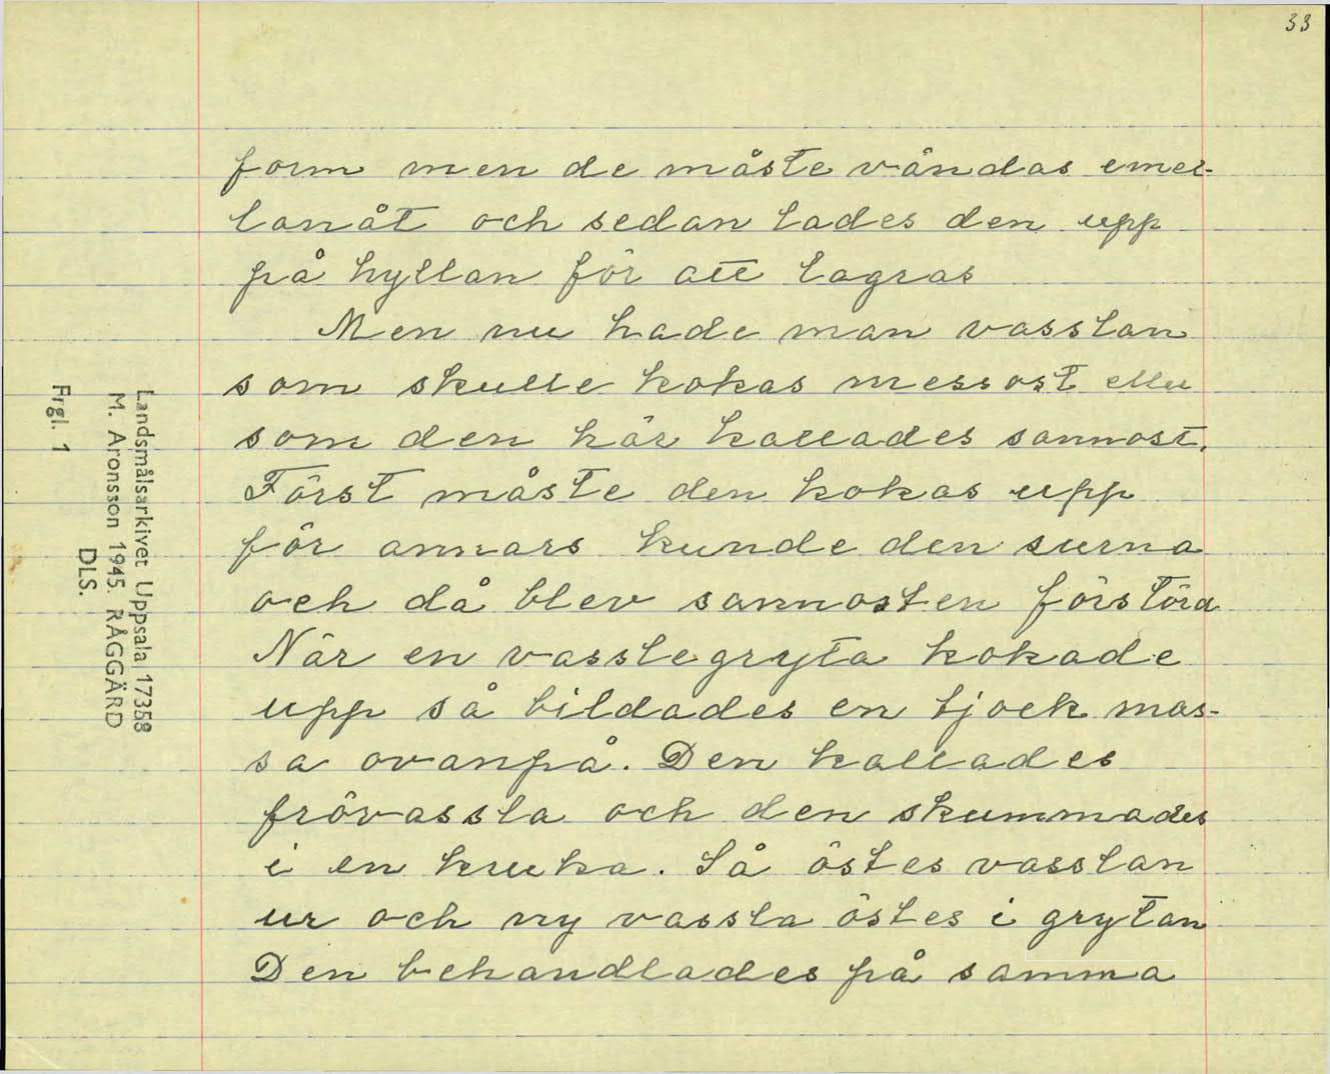 33
form men de måste vändas emel-
lanåt och sedan lades den upp
på hyllan för att lagras
Men nu hade man vasslan
som skulle kokas messost eller
som den här kallades sannost.
Först måste den kokas upp
för annars kunde den surna
och då blev sannosten förstörd
När en vasslegryta kokade
upp så bildades en tjock mas-
sa ovanpå. Den kallades
frövassla och den skummades
i en kruka. Så östes vasslan
ur och ny vassla östes i grytan
Den behandlades på samma
Landsmålsarkivet Uppsala 17358
M. Aronsson 1945. RÅGGÄRD
DLS.
Frgl. 1